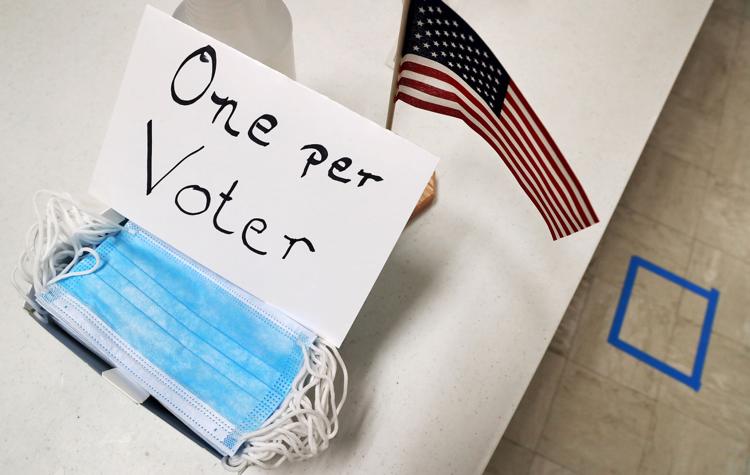 One per
Voter